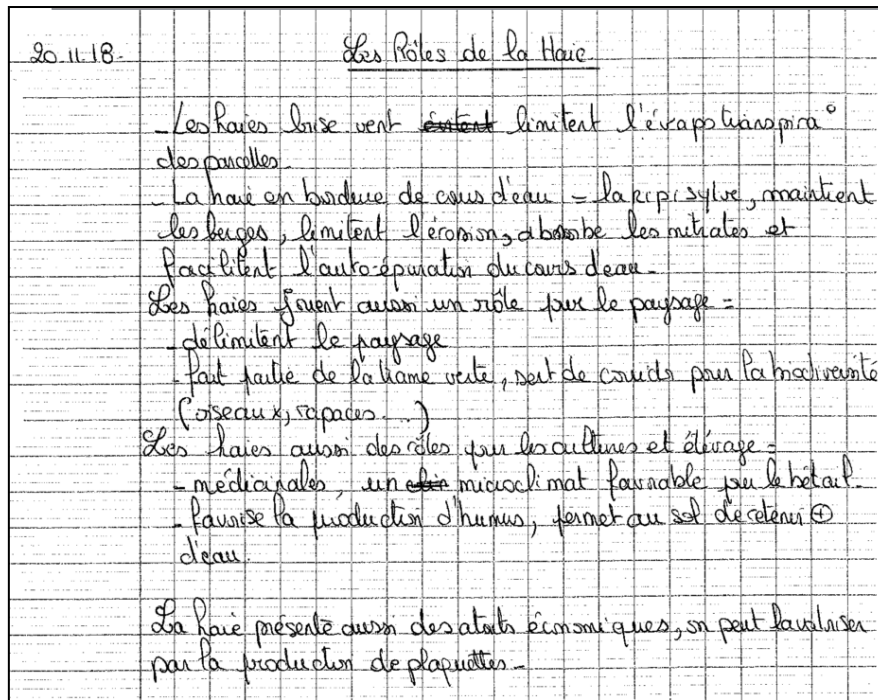 20.11.18.
Les Rôles de la Haie.
- Les haies brise vent évitent limitent l'évapotranspira°
des parcelles.
- La haie en bordure de cours d'eau = la ripisylve, maintient
les berges, limitent l'érosion, absorbe les nitrates et
facilitent l'auto-épuration du cours d'eau.
Les haies jouent aussi un rôle pour le paysage =
- délimitent le paysage
- fait partie de la trame verte, sert de corridor pour la biodiversité
(oiseaux, rapaces...)
Les haies aussi des rôles pour les cultures et élévage =
- médicinales, un microclimat favorable pour le bétail.
- favorise la production d'humus, permet au sol de retenir ⊕
d'eau.
La haie présente aussi des atouts économiques, on peut la valoriser
par la production de plaquettes.